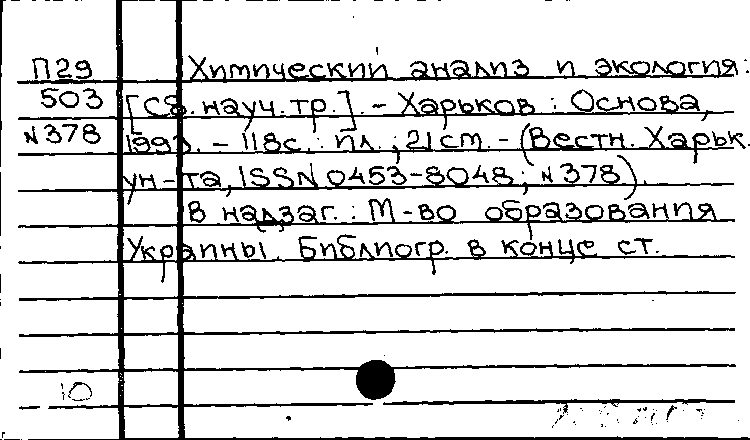 П29 Химический анализ и экология:
503 [Сб. науч. тр.]. – Харьков : Основа,
№378 – 118с. : ил. ; 21см. – (Вестн. Харьк.
ун-та, ISSN 0453-8048; №378).
В надзаг.: М-во образования
Украины. Библиогр. в конце ст.
10